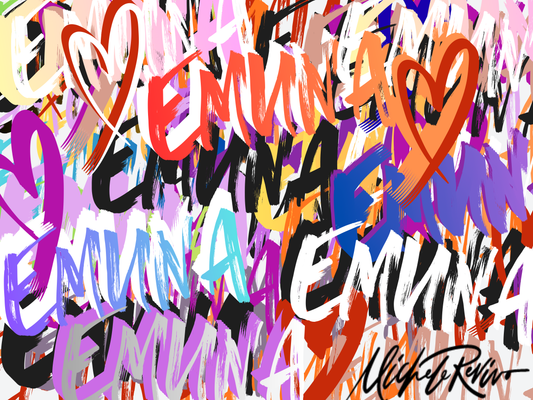 EMUNA
EMUNA
EMUNA
EMUN
EMUNA EMUNA
EMUNA
Michele Revivo